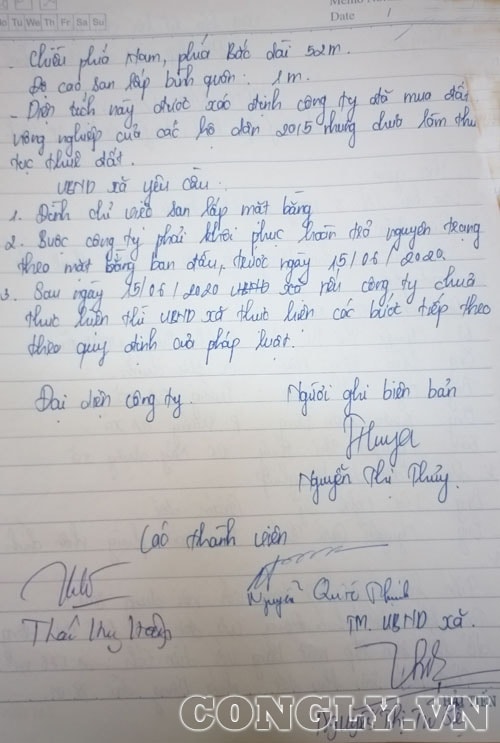 Mo Tu We Th Fr Sa Su
Date /
- Chiều phía Nam, phía Bắc dài 52m.
Độ cao san lấp bình quân: 1m.
- Diện tích này được xác định công ty đã mua đất
nông nghiệp của các hộ dân 2015 nhưng chưa làm thủ
tục thuê đất.
UBND xã yêu cầu:
1. Đình chỉ việc san lấp mặt bằng
2. Buộc công ty phải khôi phục hoàn trả nguyên trạng
theo mặt bằng ban đầu, trước ngày 15/06/2020.
3. Sau ngày 15/06/2020 UBND xã nếu công ty chưa
thực hiện thì UBND xã thực hiện các bước tiếp theo
theo quy định của pháp luật.
Đại diện công ty.
Người ghi biên bản
Nguyễn Thị Thủy.
Các thành viên
Nguyễn Quốc Thịnh
Thái Huy
TM. UBND xã.
Nguyễn Thị
CONGLY.VN